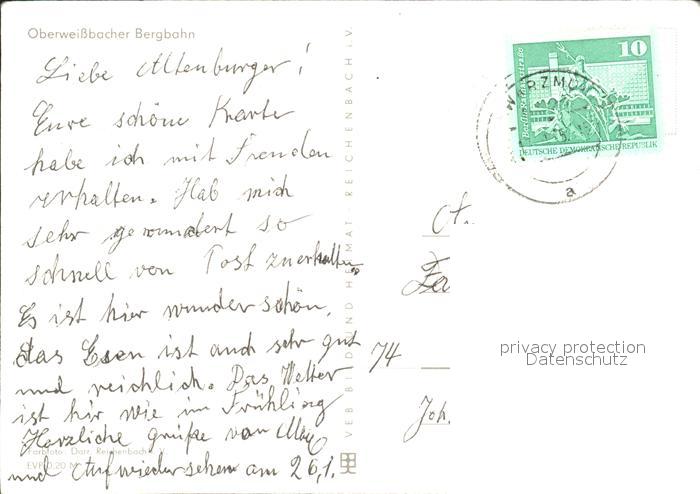 Oberweißbacher Bergbahn
Liebe Altenburger!
Eure schöne Karte
habe ich mit Freuden
erhalten. Hab mich
sehr gewundert so
schnell von Post zu erhalten.
Es ist hier wunderschön,
das Essen ist auch sehr gut
und reichlich. Das Wetter
ist hir wie im Frühling
Herzliche grüße von
und Aufwiedersehen am 26,1.
Farbfoto: Darr, Reichenbach
EVP 0,20 M
VEB BILD UND HEIMAT REICHENBACH i.V.
10
Berlin-Rathausstraße
DEUTSCHE DEMOKRATISCHE REPUBLIK
a
74
Joh.
privacy protection
Datenschutz